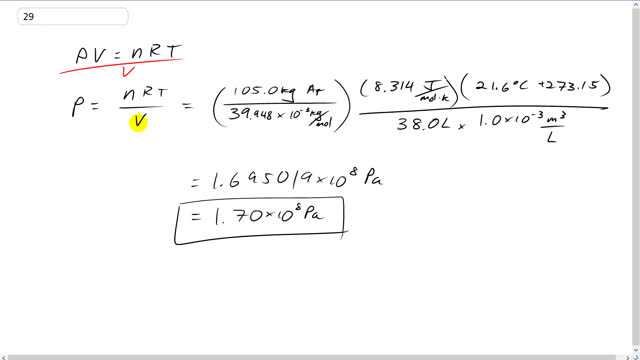 29
PV = nRT
V
P = nRT / V = (105.0 kg Ar / 39.948 × 10⁻³ kg/mol) (8.314 J/mol·K)(21.6°C + 273.15) / 38.0 L × 1.0 × 10⁻³ m³/L
= 1.695019 × 10⁸ Pa
= 1.70 × 10⁸ Pa